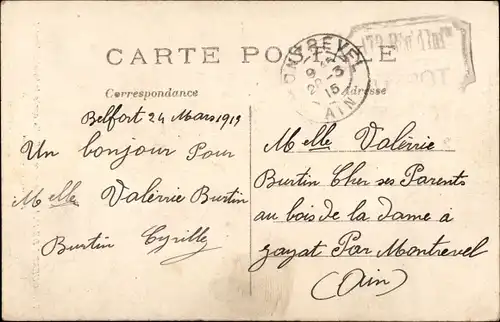 CARTE POSTALE
MONTREVEL
AIN
Correspondance
Adresse
Belfort 24 Mars 1915
Un bonjour Pour
Melle Valérie Burtin
Burtin Cyrille
Melle Valérie
Burtin Cher ses Parents
au bois de la Dame à
Jayat Par Montrevel
(Ain)